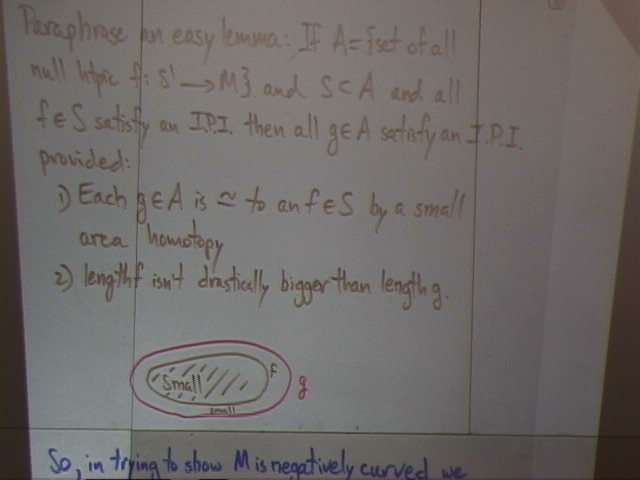 Paraphrase an easy lemma: If A = {set of all
null htpic f: S¹ → M} and S ⊂ A and all
f ∈ S satisfy an I.P.I. then all g ∈ A satisfy an I.P.I.
provided:
1) Each g ∈ A is ≃ to an f ∈ S by a small
area homotopy
2) length f isn't drastically bigger than length g.
Small
f
g
small
So, in trying to show M is negatively curved we